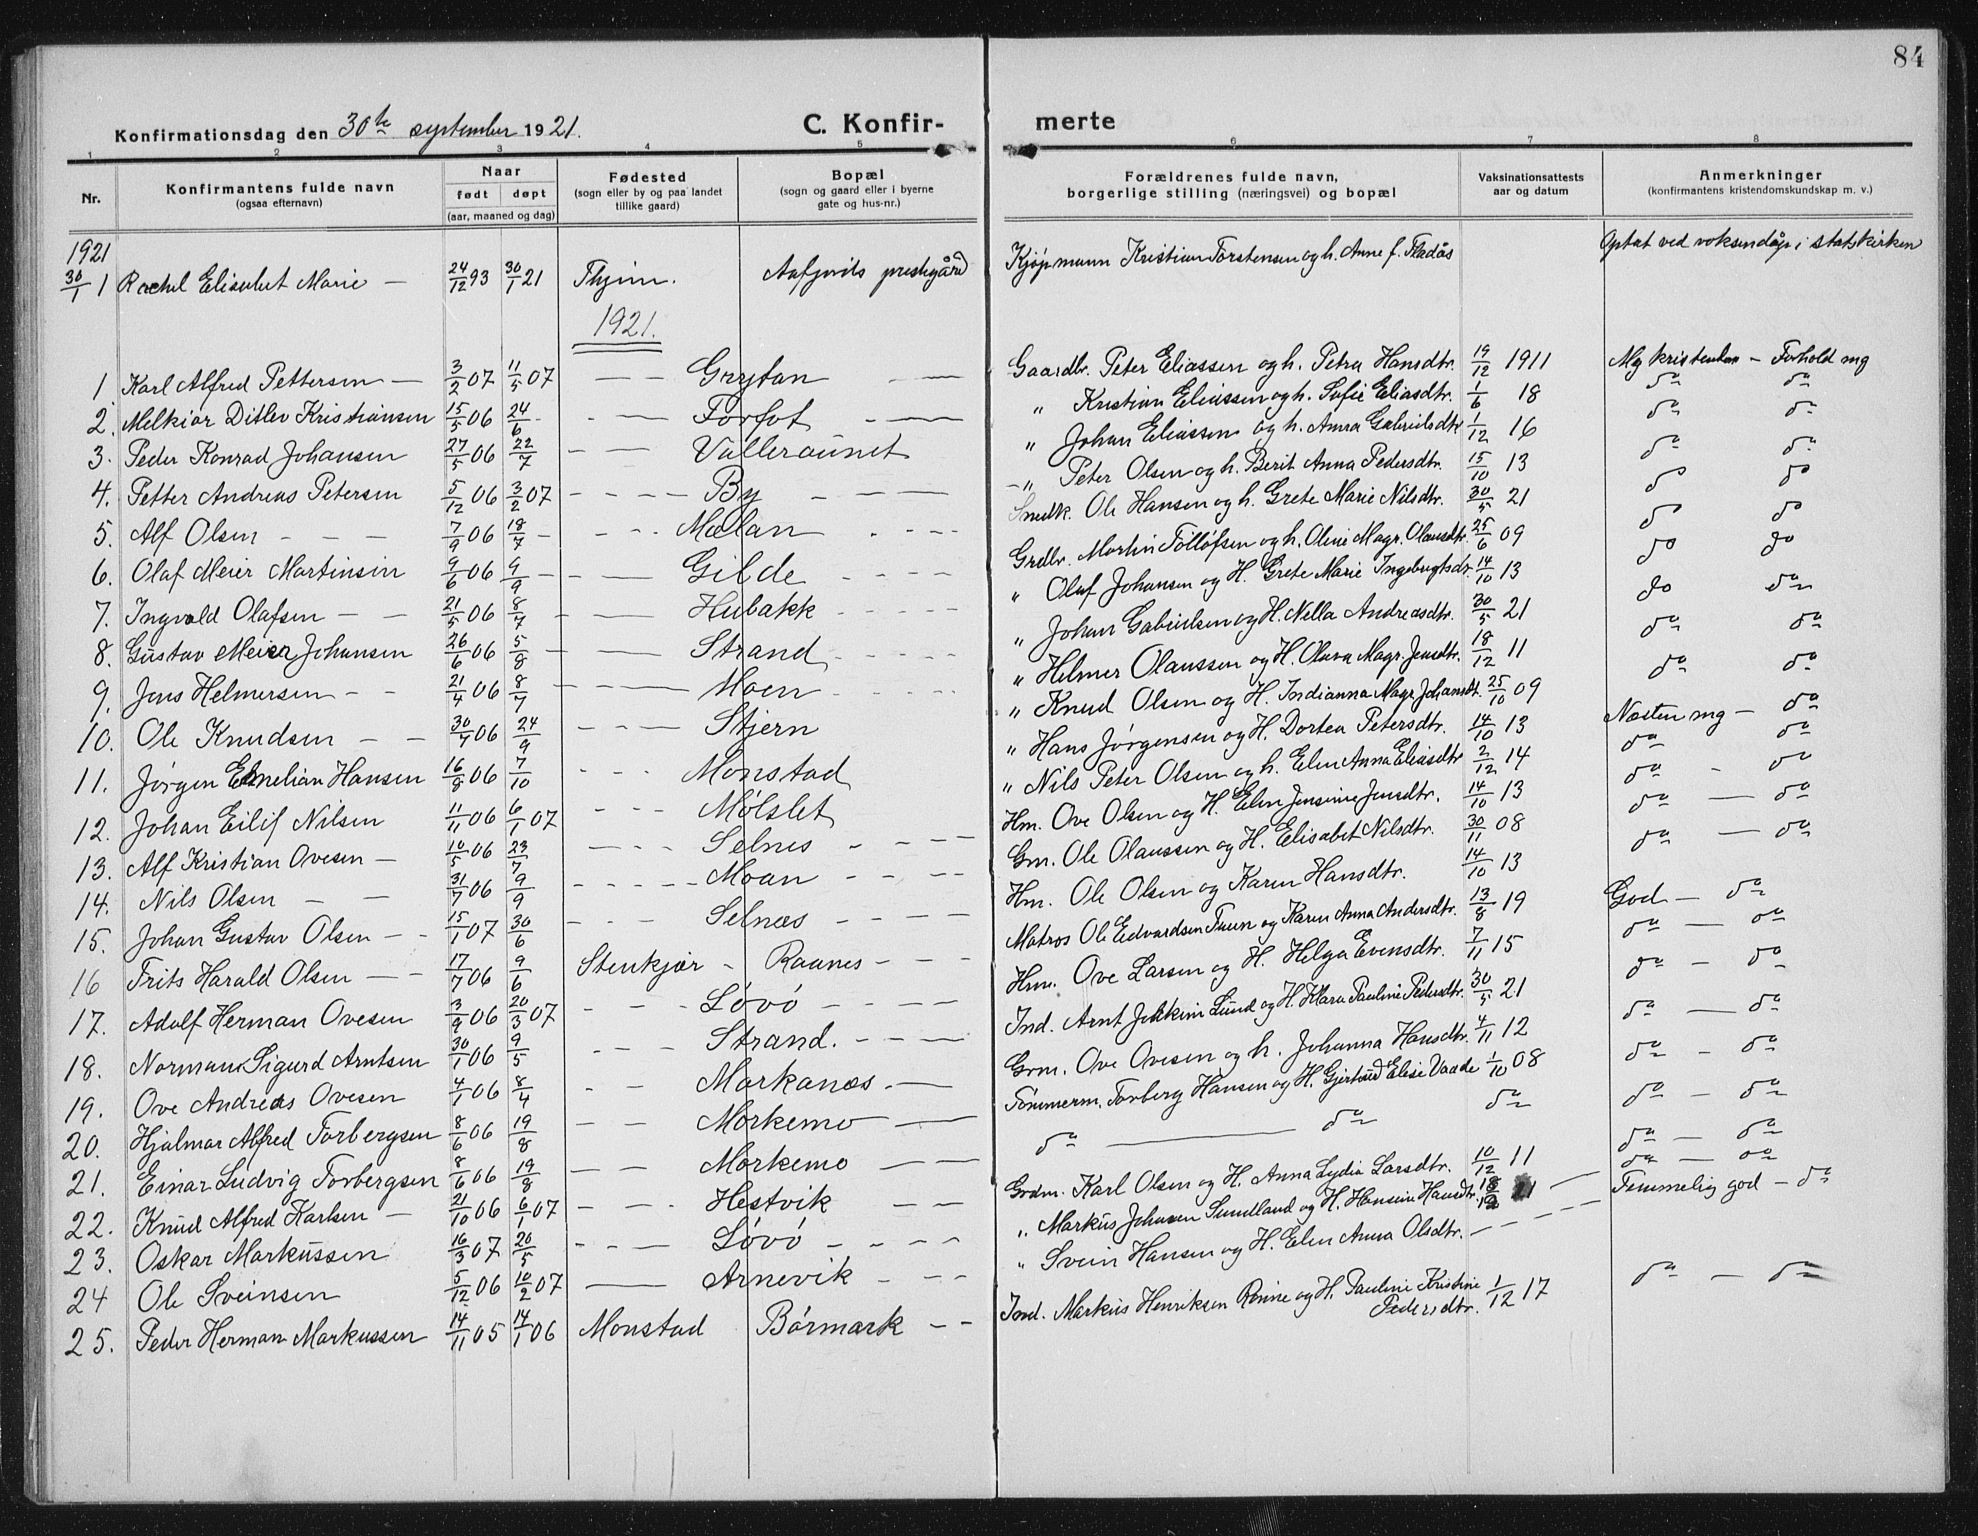 84
Konfirmationsdag den 30te september 1921.
C. Konfir-
merte
1 2 3 4 5 6 7 8
Nr. Konfirmantens fulde navn (ogsaa efternavn) Naar født døpt (aar, maaned og dag) Fødested (sogn eller by og paa landet tillike gaard) Bopæl (sogn og gaard eller i byerne gate og hus-nr.) Forældrenes fulde navn, borgerlige stilling (næringsvei) og bopæl Vaksinationsattests aar og datum Anmerkninger (konfirmantens kristendomskundskap m. v.)
1921
30/1 1 Rachel Elisabet Marie — 24/12 93 30/1 21 Thjem. Aafjords prestegård Kjøpmann Kristian Torstensen og h. Anne f. Fladås Optat ved voksendåp i statskirken
1921.
1 Karl Alfred Pettersen — 3/2 07 11/5 07 — — Grytan — — Gaardbr. Peter Eliassen og h. Petra Hansdtr. 19/12 1911 Mg kristendom — Forhold mg
2. Melkior Ditlev Kristiansen 15/5 06 24/6 - - — Forfot - — — " Kristian Eliassen og h. Sofie Eliasdtr. 1/6 18 do do
3. Peder Konrad Johansen 27/5 06 22/7 — - — Valleraunet " Johan Eliassen og h. Anna Gabrielsdtr 1/12 16 do do
4. Petter Andreas Petersen 5/12 06 3/2 07 - - - — By - — — " Peter Olsen og h. Berit Anna Pedersdtr. 15/10 13 do do
5. Alf Olsen - — — 7/9 06 18/7 — - - — Mælan - - - Snedk. Ole Hansen og h. Grete Marie Nilsdtr. 30/5 21 do do
6. Olaf Meier Martinsen 9/6 06 9/9 — - — Gilde - - - - Grdbr. Martin Tølløfsen og h. Oline Magr. Olausdtr. 25/6 09 do do
7. Ingvald Olafsen — - 21/5 06 8/7 — — Hubakk - - - - " Olaf Johansen og H. Grete Marie Ingebrigtsdr. 14/10 13 do do
8. Gustav Meier Johansen 26/6 06 5/8 — - — Strand - - - - " Johan Gabrielsen og H. Nella Andreasdtr. 30/5 21 do do
9. Jens Helmersen - - 21/4 06 8/7 - - - — Moen - - - - " Helmer Olaussen og H. Olava Magr. Jensdtr. 18/12 11 do do
10. Ole Knudsen — - 30/7 06 24/9 - - — Stjern " Knud Olsen og H. Indianna Magr. Johansdt. 25/10 09 do do
11. Jørgen Emelian Hansen 16/8 06 7/10 - - - Monstad " Hans Jørgensen og H. Dortea Petersdtr. 14/10 13 Næsten mg — do
12. Johan Eilif Nilsen 11/11 06 6/1 07 - - — Mølslet " Nils Peter Olsen og h. Elen Anna Eliasdtr 2/12 14 do do
13. Alf Kristian Ovesen — 10/5 06 23/7 - - - — Selnes - - - — Hm. Ove Olsen og H. Elen Jensine Jensdtr. 14/10 13 do - do
14. Nils Olsen - — 31/7 06 9/9 - - - - — Moan - - - — Gm. Ole Olaussen og H. Elisabet Nilsdtr. 30/11 08 do — do
15. Johan Gustav Olsen — - 15/1 07 30/6 - - — Selnæs - - - — Hm. Ole Olsen og Karen Hansdtr. 14/10 13 do — do
16 Frits Harald Olsen — - 17/7 06 9/6 Stenkjær - Raanes - - - Matros Ole Edvardsen Tuun og Karen Anna Andersdtr. 13/8 19 God — do
17. Adolf Herman Ovesen 3/9 06 20/3 07 - - - Løvø - - — Hm. Ove Larsen og H. Helga Evensdtr. 7/11 15 do — do
18. Norman Sigurd Arntsen 30/1 06 9/5 - - — Strand. - - - — Ind. Arnt Jekkim Lund og H. Klara Pauline Pedersdtr. 30/5 21 do — do
19. Ove Andreas Ovesen 4/1 06 8/4 - - — Markanæs - — Grm. Ove Ovesen og h. Johanna Hansdtr. 4/11 12 do — do
20. Hjalmar Alfred Torbergsen 8/6 06 19/8 - - — Morkemo — Tømmerm. Torberg Hansen og H. Gjertrud Elise Vaade 1/10 08 do - do
21. Einar Ludvig Torbergsen 8/6 06 19/8 - - — Morkemo — — do — do do do — do
22. Knud Alfred Karlsen — 21/10 06 6/1 07 - - - Hestvik - — Grdm. Karl Olsen og H. Anna Lydia Larsdtr. 10/12 11 do — do
23. Oskar Markussen 16/3 07 20/5 - - - — Løvø - - - — " Markus Johnsen Sundland og H. Hansine Hansdtr. do — do
24 Ole Sveinsen 5/12 06 10/2 07 — Arnevik - - - " Svein Hansen og H. Elen Anna Olsdtr. — - - - Temmelig god — do
25. Peder Herman Markussen 14/11 05 14/1 06 Monstad Børmark - - Ind. Markus Henriksen Rønne og H. Pauline Kristine Pedersdtr. 1/12 17 do — do